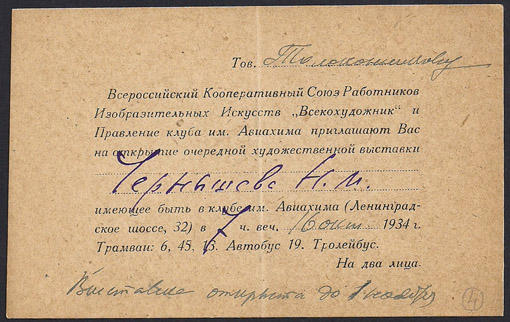 Тов. Толоконникову
Всероссийский Кооперативный Союз Работников
Изобразительных Искусств „Всекохудожник" и
Правление клуба им. Авиахима приглашают Вас
на открытие очередной художественной выставки
Чернышева Н.М.
имеющее быть в клубе им. Авиахима (Ленинград-
ское шоссе, 32) в 7 ч. веч. 16 окт. 1934 г.
Трамваи: 6, 45, 13. Автобус 19. Тролейбус.
На два лица.
Выставка открыта до 1 ноября
4